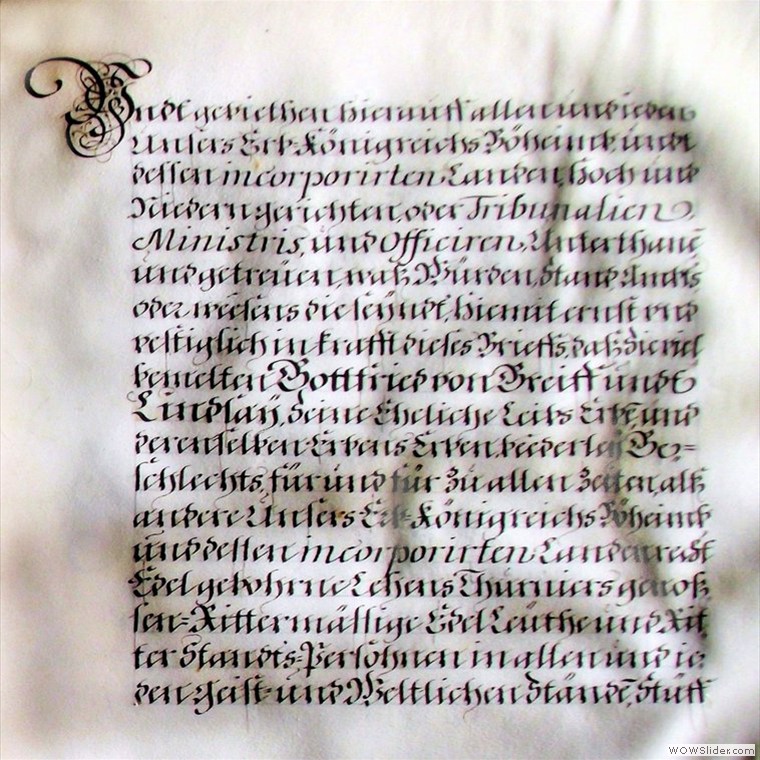 Undt gebiethen hierauff allen und ieden
Unsers Erb-Königreichs Böheimb, undt
dessen incorporirten Landen, hoch und
Niedern gerichten, oder Tribunalien,
Ministris, und Officiren, Unterthanē
und getreüen, waß Würden, Stand Ambts
oder weesens die seyndt, hiemit ernst und
vestiglich in krafft dieses Brieffs, daß Sie viel
bemelten Gottfried von Greiff undt
Lindsay, Seine Eheliche Leibs Erbē, und
derenselben Erbens Erben, beederley Ge=
schlechts, für und für Zu allen Zeiten, alß
andere Unsers Erb-Königreichs Böheimb
und dessen incorporirten Landen recht
Edel gebohrne Lehens Thurniers genoß
sen=Rittermässige Edel Leüthe und Rit
ter Standts=Persohnen in allen und ie=
den geist= und Weltlichen Ständē, Stüff
WOWSlider.com